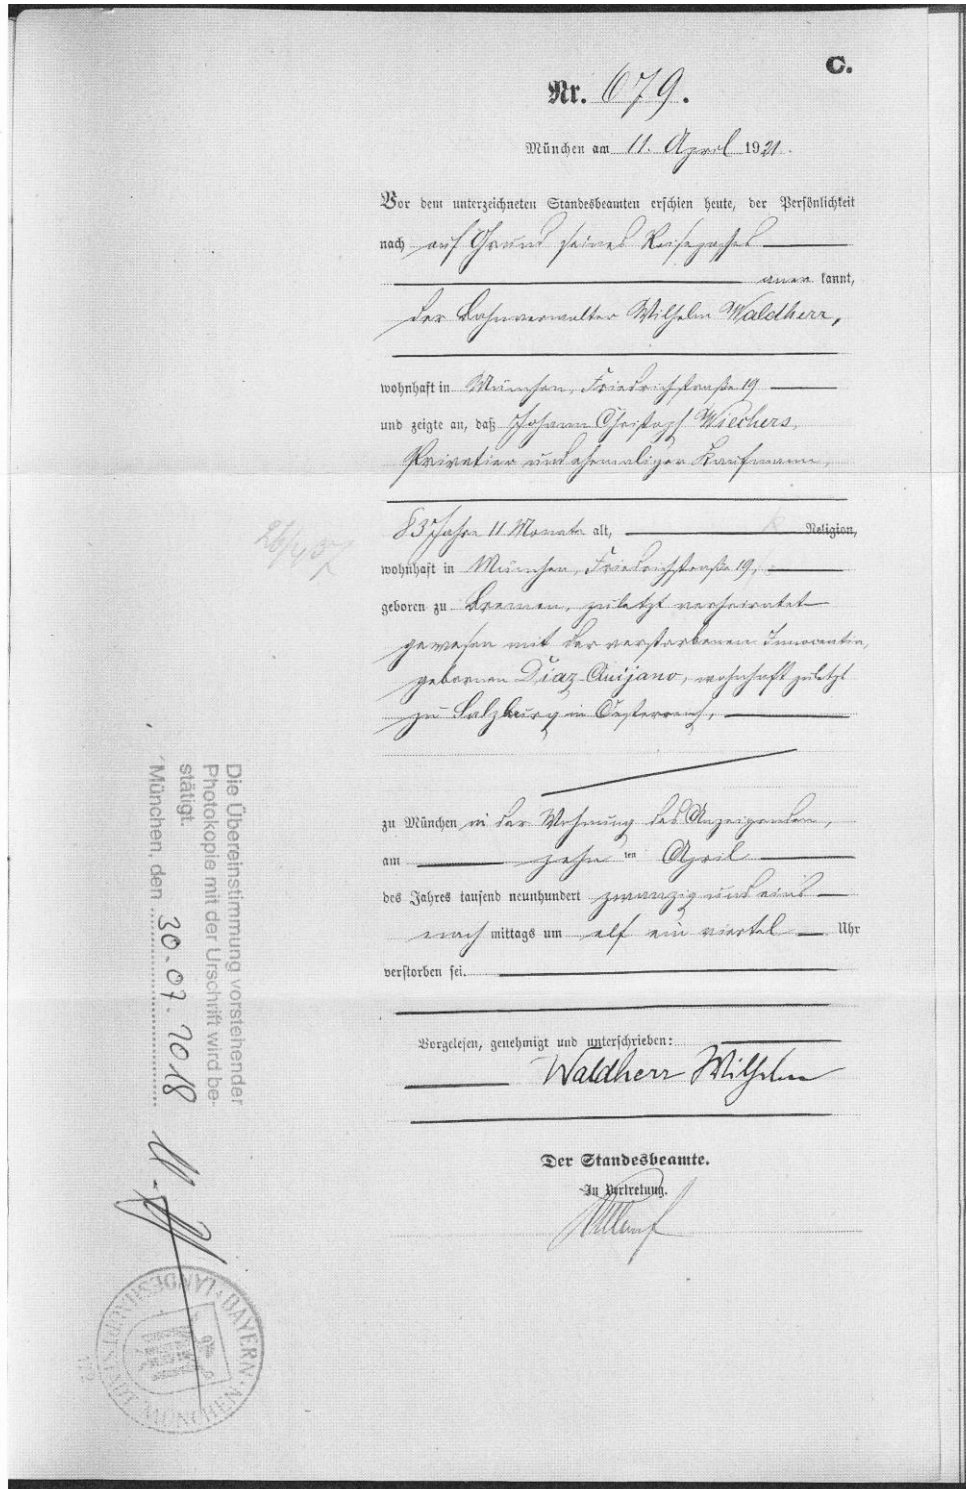 C.
Nr. 679.
München am 11. April 1921.
Vor dem unterzeichneten Standesbeamten erschien heute, der Persönlichkeit
nach auf Grund seines Reisepasses
aner kannt,
der Bahnverwalter Wilhelm Waldherr,
wohnhaft in München, Friedrichstraße 19
und zeigte an, daß Johann Christoph Wiechers,
Privatier und ehemaliger Kaufmann,
83 Jahre 11 Monate alt, Religion,
wohnhaft in München, Friedrichstraße 19,
geboren zu Bremen, zuletzt verheiratet
gewesen mit der verstorbenen Innocentia,
gebornen Diaz-Quijano, wohnhaft zuletzt
zu Salzburg in Oesterreich,
zu München in der Wohnung des Anzeigenden,
am zehn ten April
des Jahres tausend neunhundert zwanzig und eins
nach mittags um elf ein viertel Uhr
verstorben sei.
Vorgelesen, genehmigt und unterschrieben:
Waldherr Wilhelm
Der Standesbeamte.
In Vertretung.
26/4 37
Die Übereinstimmung vorstehender
Photokopie mit der Urschrift wird be-
stätigt.
München, den 30.07.2018
LANDESHAUPTSTADT MÜNCHEN
BAYERN
172